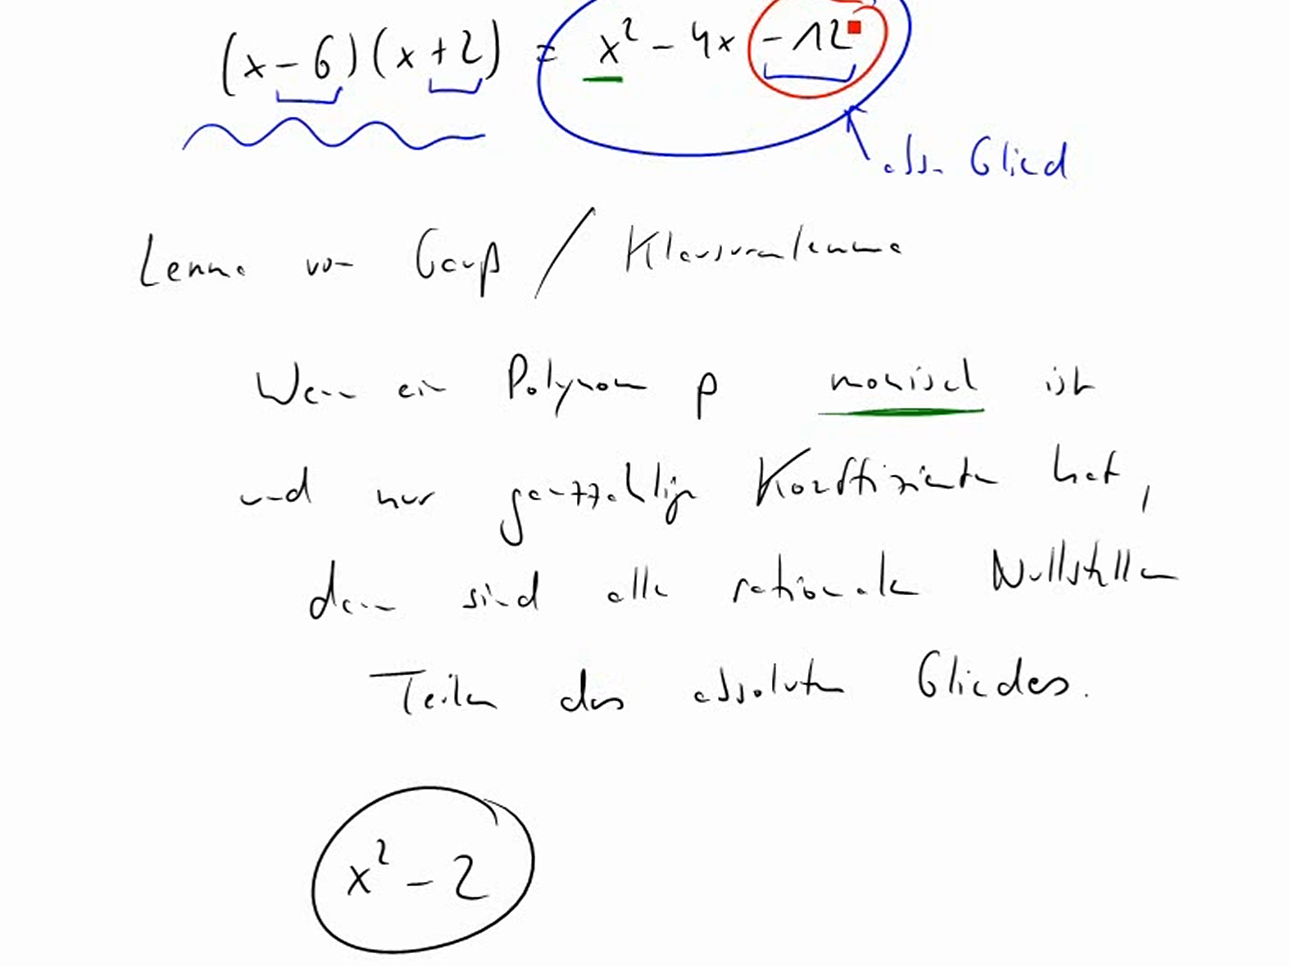 (x - 6)(x + 2) = x² - 4x - 12
abs. Glied
Lemma von Gauß / Klausurenlemma
Wenn ein Polynom p monisch ist
und nur ganzzahlige Koeffizienten hat,
dann sind alle rationale Nullstellen
Teiler des absoluten Gliedes.
x² - 2